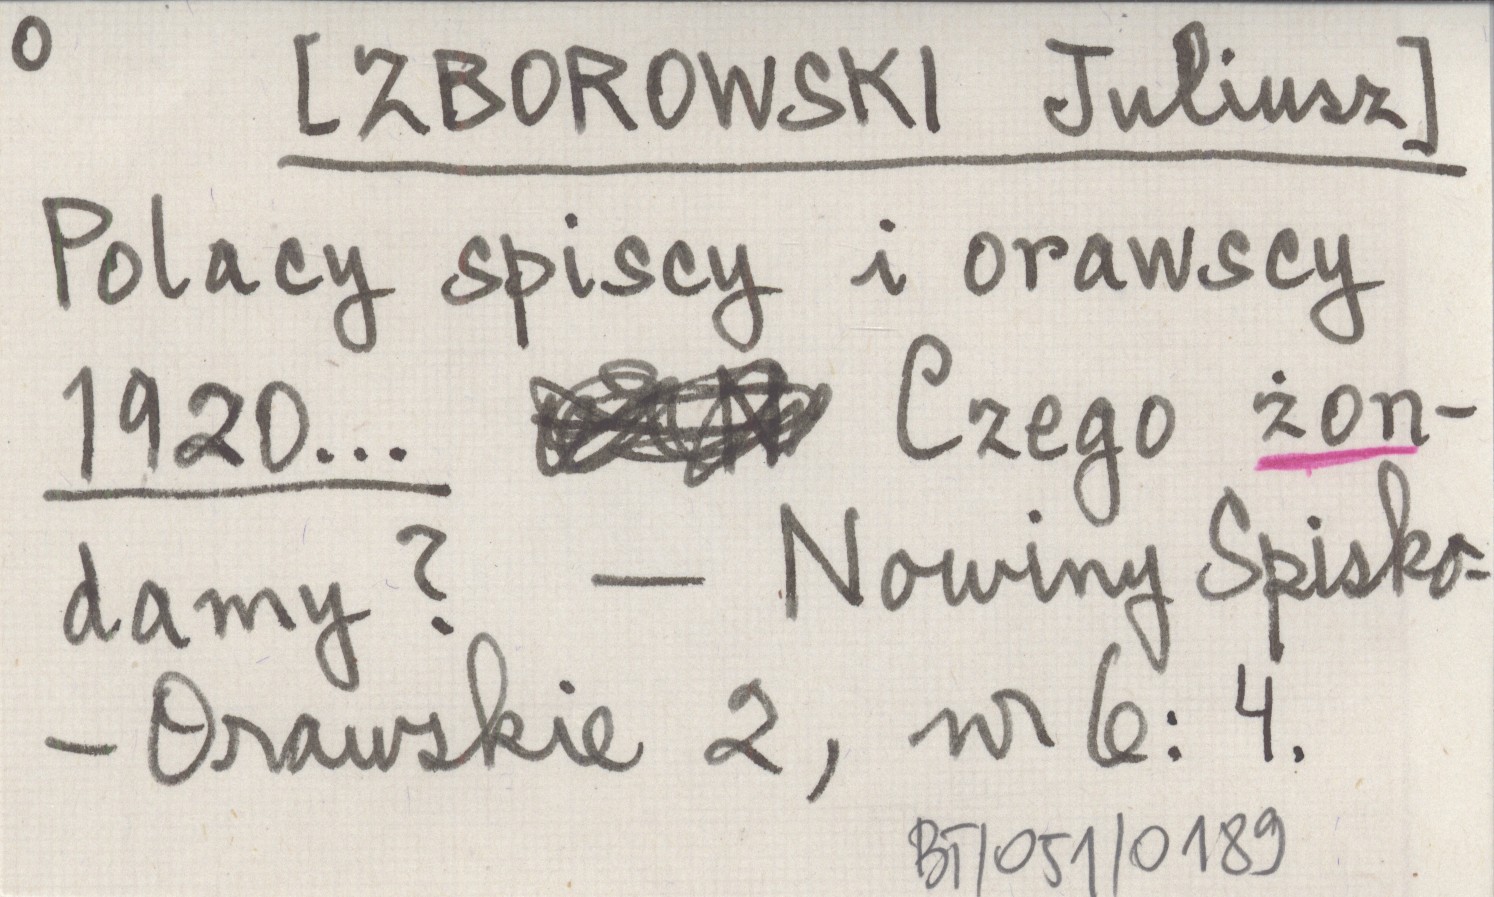 o
[ZBOROWSKI Juliusz]
Polacy spiscy i orawscy
1920... Czego żon-
damy? — Nowiny Spisko-
-Orawskie 2, nr 6: 4.
BT/051/0189